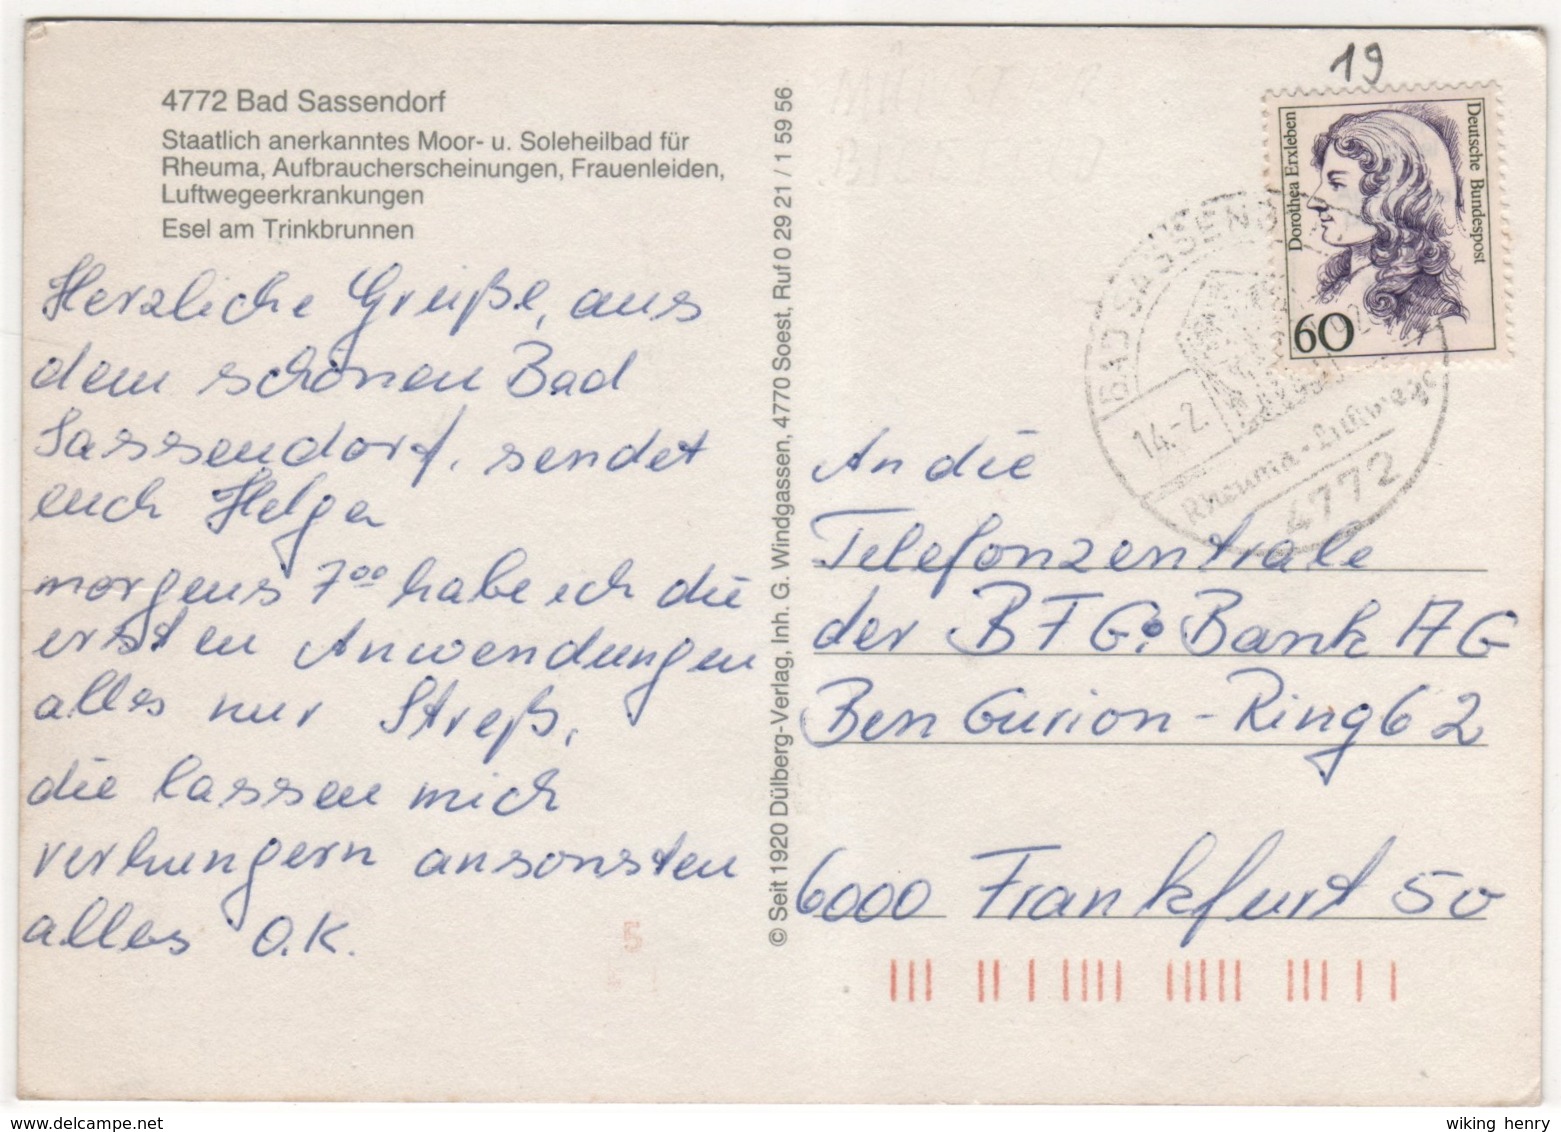 4772 Bad Sassendorf
Staatlich anerkanntes Moor- u. Soleheilbad für
Rheuma, Aufbraucherscheinungen, Frauenleiden,
Luftwegeerkrankungen
Esel am Trinkbrunnen
Herzliche Grüße, aus
dem schönen Bad
Sassendorf, sendet
euch Helga
morgens 7⁰⁰ habe ich die
ersten Anwendungen
alles nur Streß,
die lassen mich
verhungern ansonsten
alles O.K.
5
© Seit 1920 Dülberg-Verlag, Inh. G. Windgassen, 4770 Soest, Ruf 0 29 21 / 1 59 56
19
Dorothea Erxleben
Deutsche Bundespost
60
BAD SASSEND
14.-2.
Rheuma - Luftwege
4772
An die
Telefonzentrale
der BfG: Bank AG
Ben Gurion-Ring 62
6000 Frankfurt 50
wiking henry